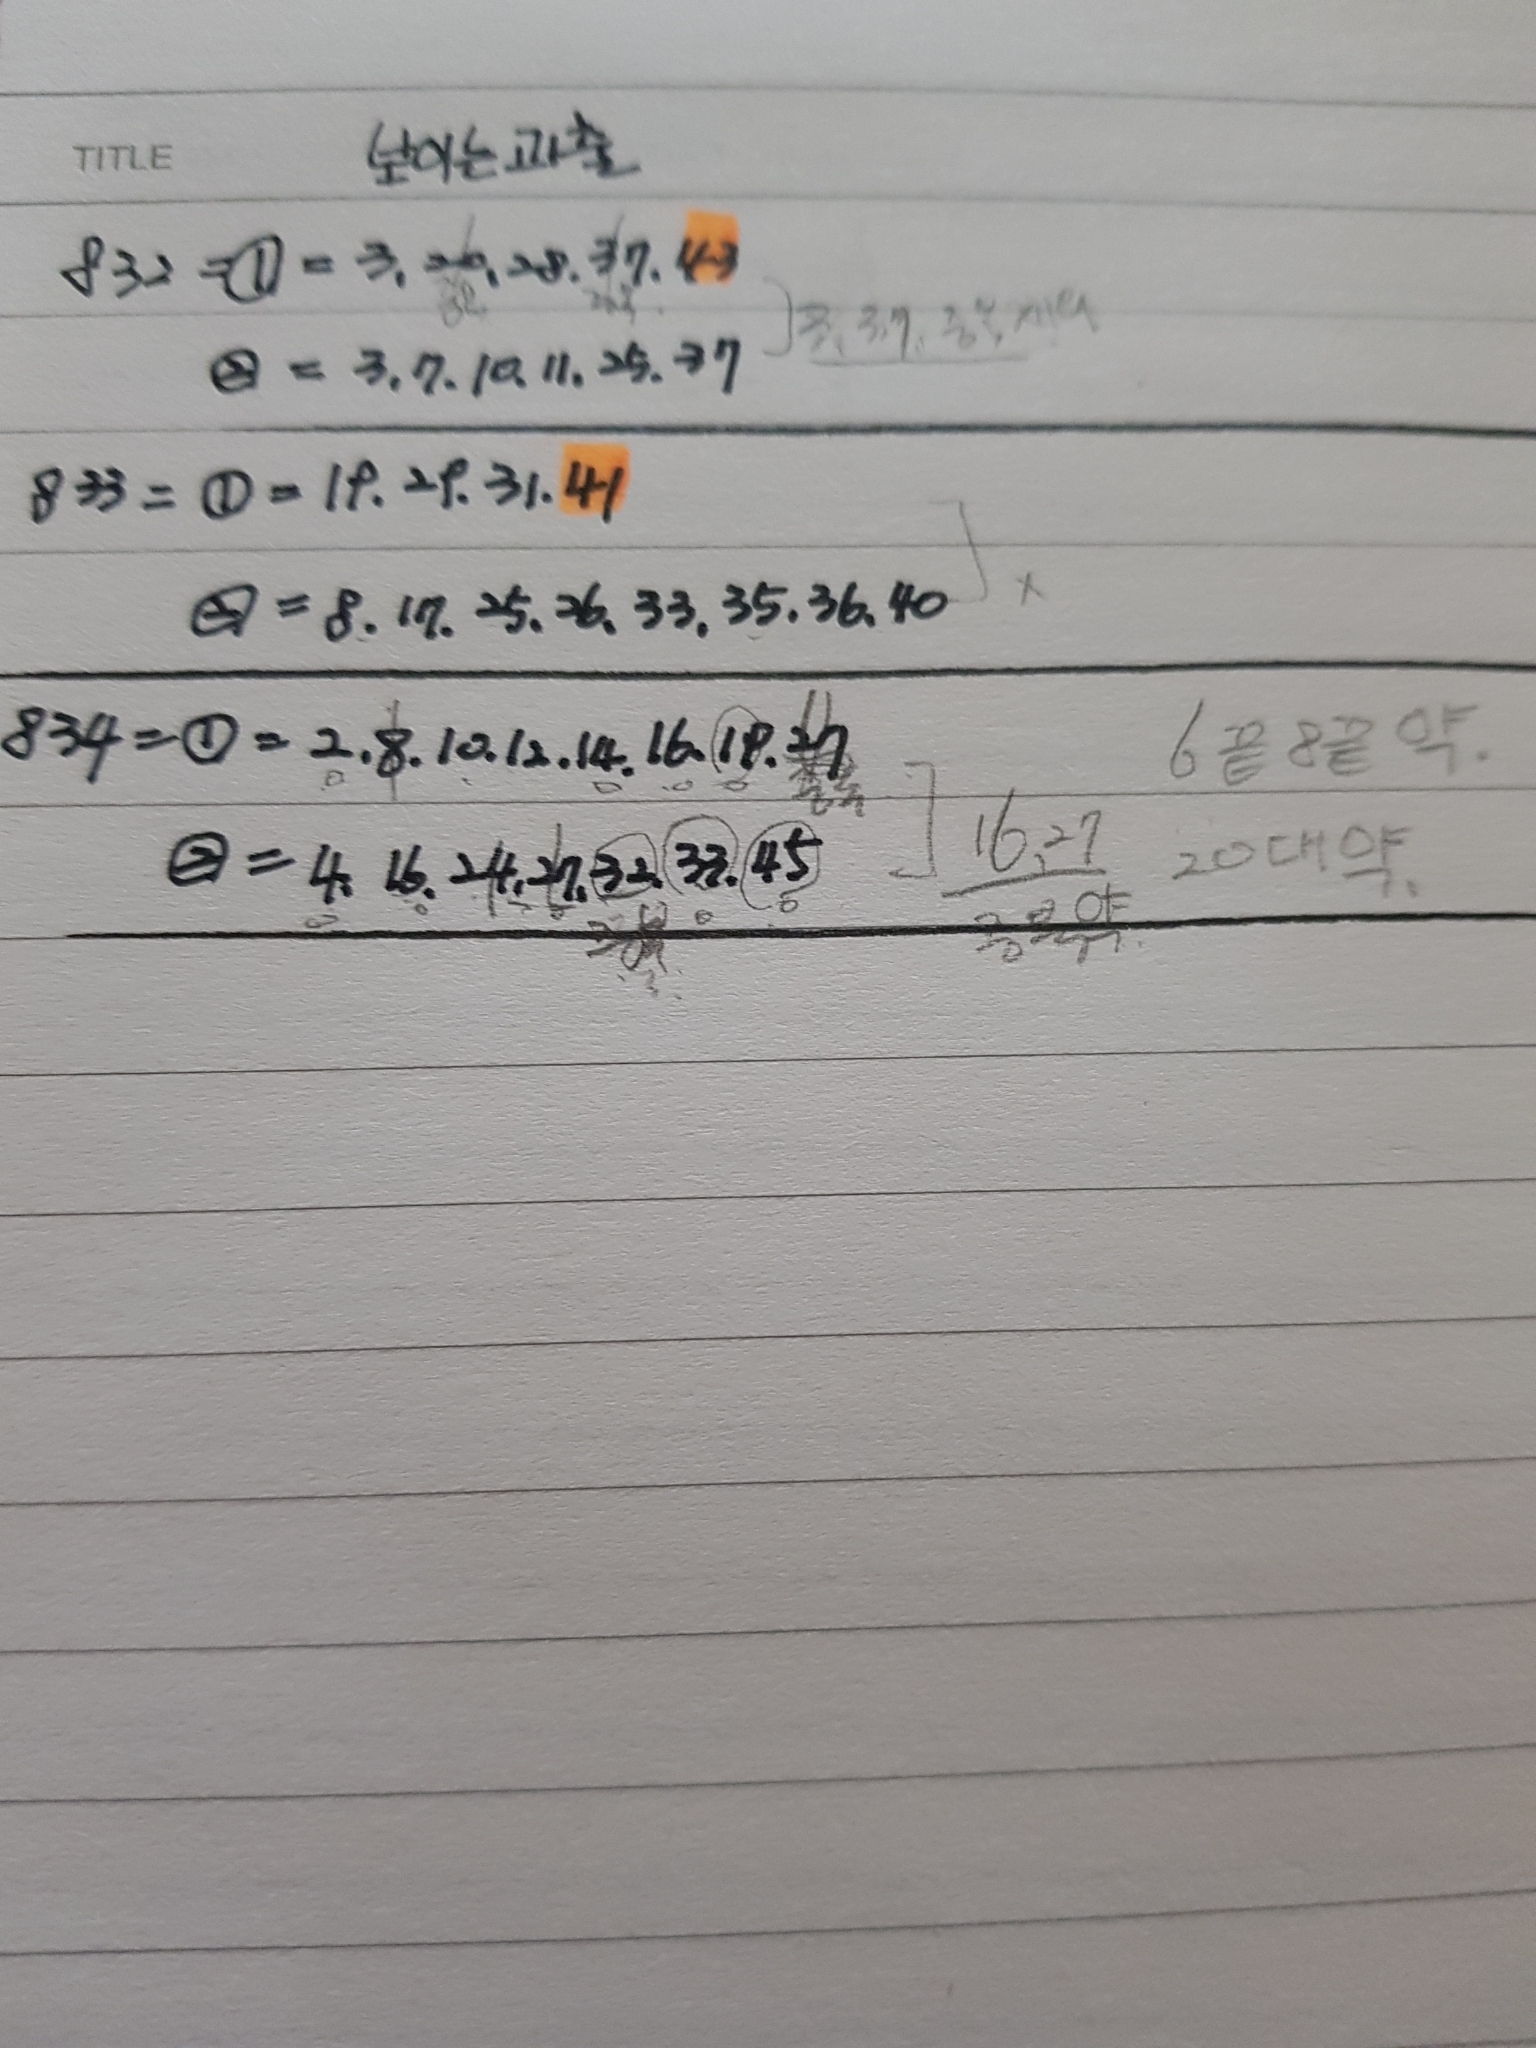 TITLE 보이는 과출
832 = ① = 3. 26. 28. 37. 43
② = 3. 7. 10. 11. 25. 37
3. 37. 중복
833 = ① = 19. 29. 31. 41
② = 8. 17. 25. 26. 33. 35. 36. 40
x
834 = ① = 2. 8. 10. 12. 14. 16. 19. 27
6끝 8끝 약.
② = 4. 16. 24. 27. 32. 33. 45
16, 27
20대 약.
중복 약.